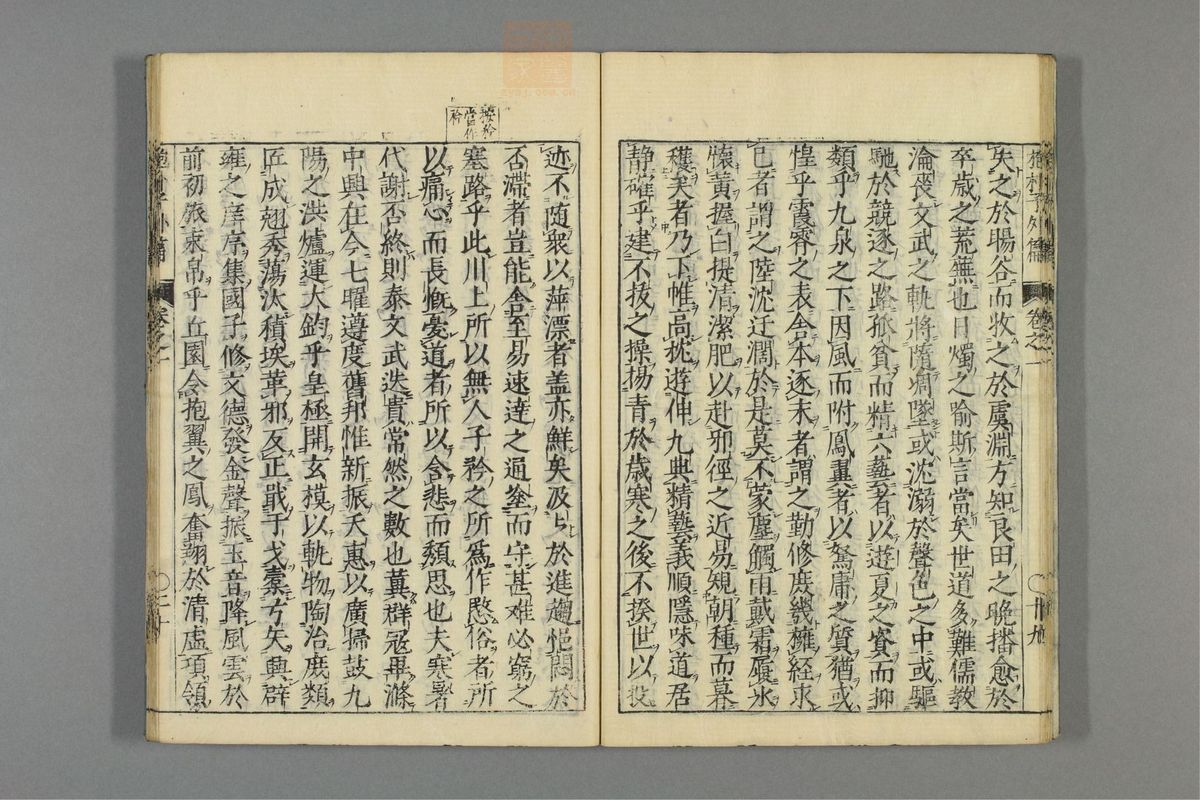 失之於暘谷而收之於虞淵方知良田之晚播愈於
卒歲之荒蕪也日燭之喻斯言當矣世道多難儒教
淪喪文武之軌將隨凋墜或沈溺於聲色之中或驅
馳於競逐之路孤貧而精六藝者以遊夏之資而抑
類乎九泉之下因風而附鳳翼者以駑庸之質猶或
惶乎霞霄之表舍本逐末者謂之勤修庶幾擁経求
己者謂之陸沈迂濶於是莫不蒙塵觸雨戴霜履氷
懷黃握白提清潔肥以赴邪徑之近易規朝種而暮
穫矣者乃下帷高枕遊伸九典精藝義順隱味道居
静確乎建不抜之操揚青於歳寒之後不揆世以投
迹不随衆以萍漂者盖亦鮮矣汲々於進趣悒悶於
否滯者豈能舎至易速達之通塗而守甚难必窮之
塞路乎此川上所以無人子衿之所爲作愍俗者所
以痛心而長慨憂道者所以含悲而頽思也夫寒暑
代謝否終則泰文武迭貴常然之數也冀群冦畢滌
中興在今七曜遵度舊邦惟新振天惠以廣掃鼓九
陽之洪爐運大鈞乎皇極開玄模以軌物陶治庶類
匠成翹秀蕩汰積埃革邪反正戢于戈櫜弓矢興辟
雍之庠序集國子修文德發金聲振玉音降風雲於
前初旅束帛乎丘園令抱翼之鳳奮翔於清虛項領
按衿
當作
衿
抱朴子外篇
卷之一
廿九
卷之一
三十